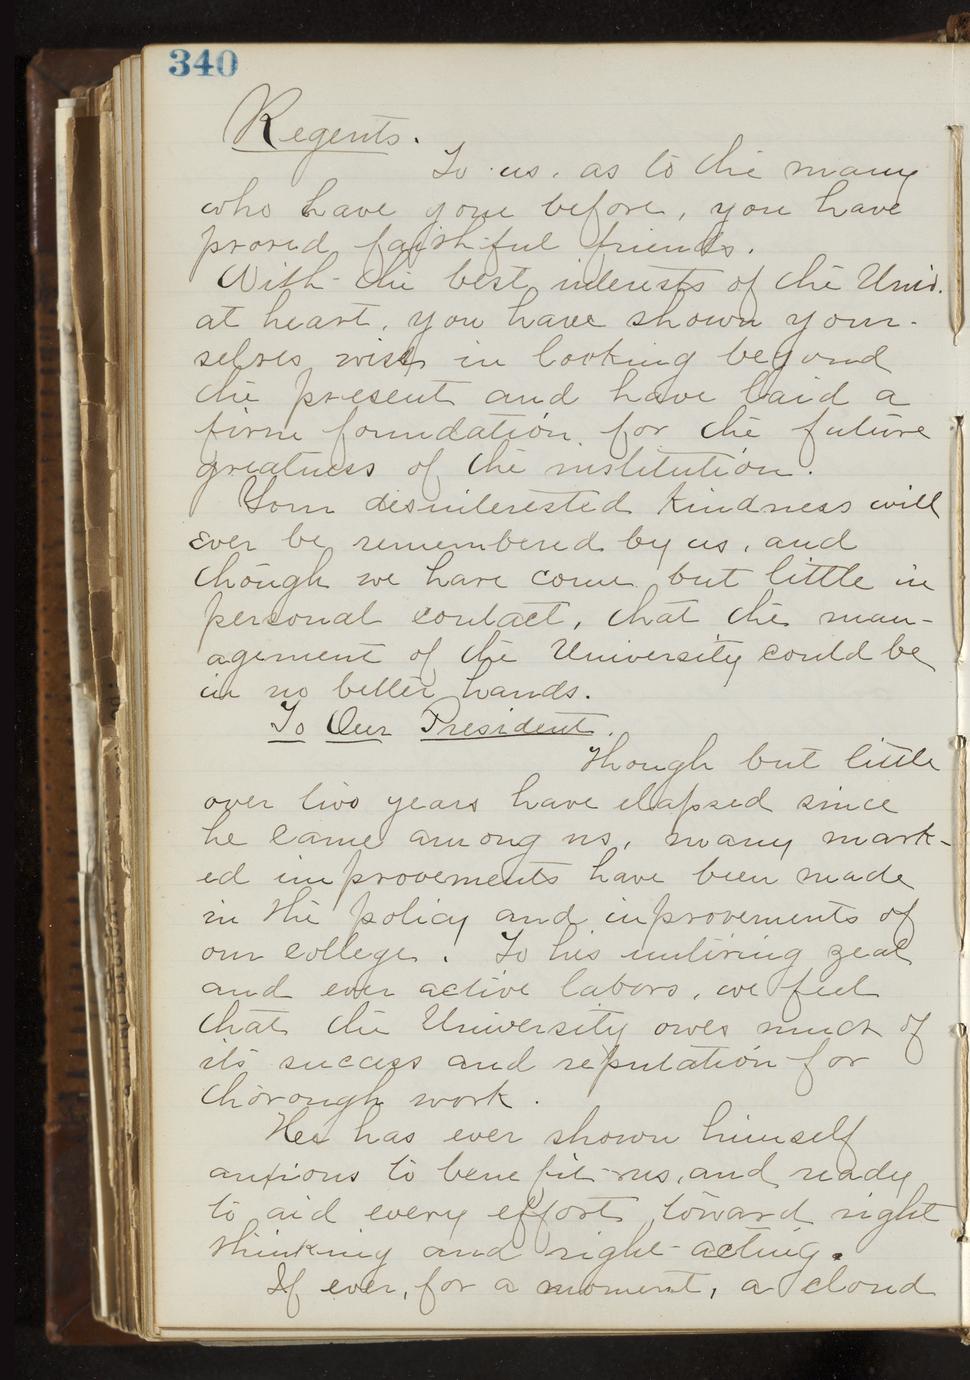 340
Regents.
To us, as to the many
who have gone before, you have
proved faithful friends.
With the best interests of the Univ.
at heart, you have shown your-
selves wise in looking beyond
the present and have laid a
firm foundation for the future
greatness of the institution.
Your disinterested kindness will
ever be remembered by us, and
though we have come but little in
personal contact, that the man-
agement of the University could be
in no better hands.
To Our President.
Though but little
over two years have elapsed since
he came among us, many mark-
ed improvements have been made
in the policy and inprovements of
our college. To his untiring zeal
and ever active labors, we feel
that the University owes much of
its success and reputation for
thorough work.
He has ever shown himself
anxious to benefit us, and ready
to aid every effort toward right
thinking and right-acting.
If ever, for a moment, a cloud